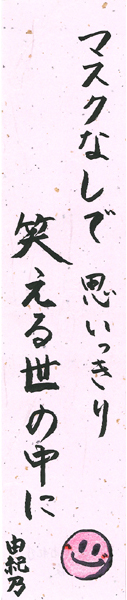 マスクなしで 思いっきり
笑える世の中に
由紀乃